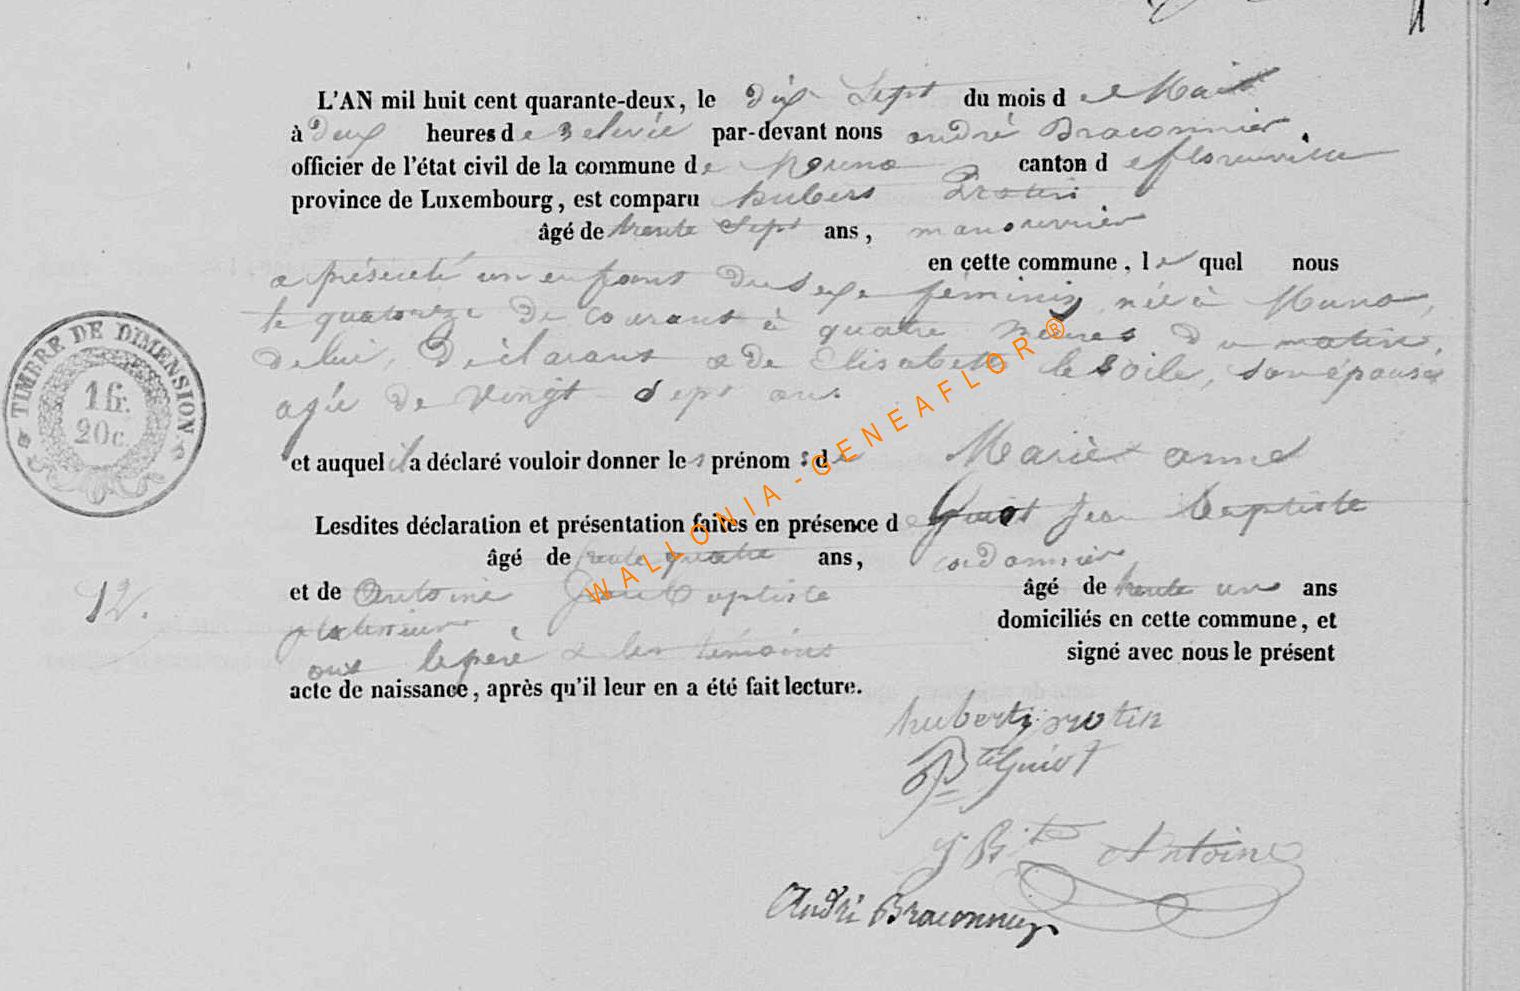 L'AN mil huit cent quarante-deux, le dix Sept du mois d e Mai
à deux heures d e relevée par-devant nous andré Braconnier,
officier de l'état civil de la commune d e Muno canton d e florenville
province de Luxembourg, est comparu hubert Protin
âgé de trente Sept ans, manouvrier
en cette commune, l e quel nous
a présenté un enfant du sexe féminin, née à Muno,
le quatorze de courant à quatre heures du matin,
de lui, Déclarant & de Elisabeth, son épouse
agée de vingt sept ans.
et auquel il a déclaré vouloir donner le s prénom s d e Marie anne
Lesdites déclaration et présentation faites en présence d e Guiot Jean Baptiste
âgé de trente quatre ans, cordonnier
et de Antoine Jean Baptiste âgé de trente un ans
domiciliés en cette commune, et
ont le père & les témoins signé avec nous le présent
acte de naissance, après qu'il leur en a été fait lecture.
hubert protin
Bte Guiot
J Bte Antoine
André Braconnier
12.
TIMBRE DE DIMENSION
1 fr.
20 c.
WALLONIA - GENEAFLOR®